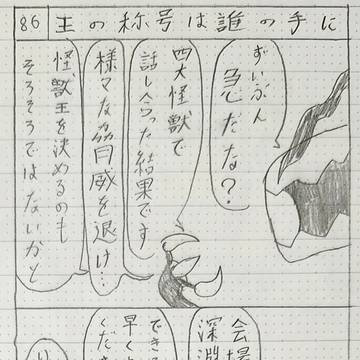 86 王の称号は誰の手に
ずいぶん
急だな？
四大怪獣で
話し合った結果です
様々な脅威を退け…
怪獣王を決めるのも
そろそろではないかと
会場
深淵
できる
早く
くださ